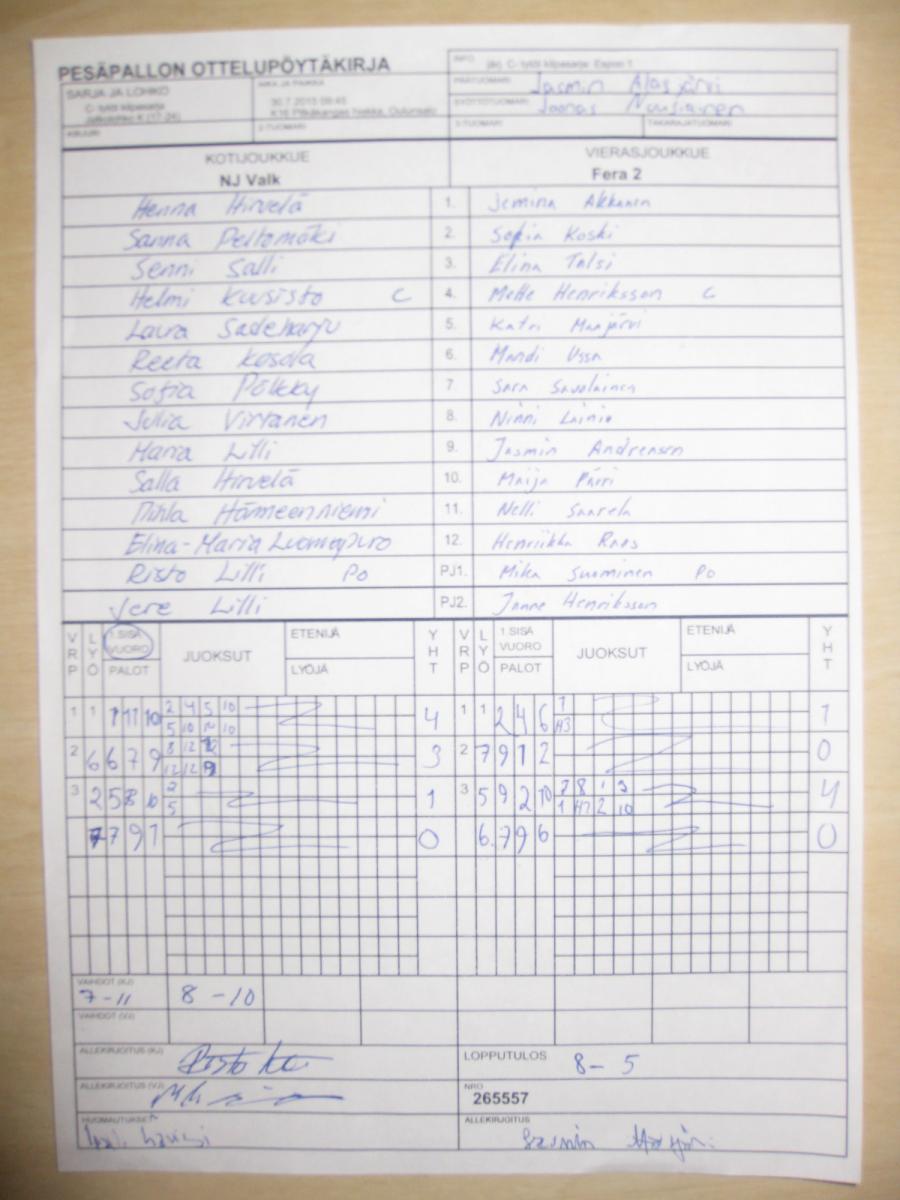 PESÄPALLON OTTELUPÖYTÄKIRJA
INFO (jär). C- tytöt kilpasarja: Espoo 1
PÄÄTUOMARI Jasmin Alasjärvi
SARJA JA LOHKO AIKA JA PAIKKA SYÖTTÖTUOMARI Joonas Nuusiainen
C- tytöt kilpasarja 30.7.2015 09:45
Jatkolohko K (17-24) K16 Pitkäkangas hiekka, Oulunsalo
KIRJURI 2-TUOMARI 3-TUOMARI TAKARAJATUOMARI
KOTIJOUKKUE VIERASJOUKKUE
NJ Valk Fera 2
Henna Hirvelä 1. Jemina Akkanen
Sanna Peltomäki 2. Sofia Koski
Senni Salli 3. Elina Talsi
Helmi Kuusisto C 4. Mette Henriksson C
Laura Sadeharju 5. Katri Maajärvi
Reeta Kosola 6. Mandi Ussa
Sofia Pölkky 7. Sara Savolainen
Julia Virtanen 8. Ninni Lainio
Maria Lilli 9. Jasmin Andreasen
Salla Hirvelä 10. Maija Päiri
Hämeenniemi 11. Nelli Saarela
Elina-Maria Luomapuro 12. Henriikka Raas
Risto Lilli PO PJ1. Mika Suominen PO
Jere Lilli PJ2. Janne Henriksson
VRP LYÖ 1.SISÄ VUORO PALOT JUOKSUT ETENIJÄ LYÖJÄ YHT VRP LYÖ 1.SISÄ VUORO PALOT JUOKSUT ETENIJÄ LYÖJÄ YHT
1 1 7 11 10 2 4 5 10 4 1 1 2 4 6 1
2 6 6 7 9 3 2 7 9 1 2 0
3 2 5 8 10 2 5 1 3 5 9 2 10 7 8 1 3 4
7 7 9 1 0 6 7 9 6 0
VAIHDOT (KJ)
7-11 8-10
VAIHDOT (VJ)
ALLEKIRJOITUS (KJ) LOPPUTULOS 8-5
ALLEKIRJOITUS (VJ) NRO 265557
HUOMAUTUKSET ALLEKIRJOITUS